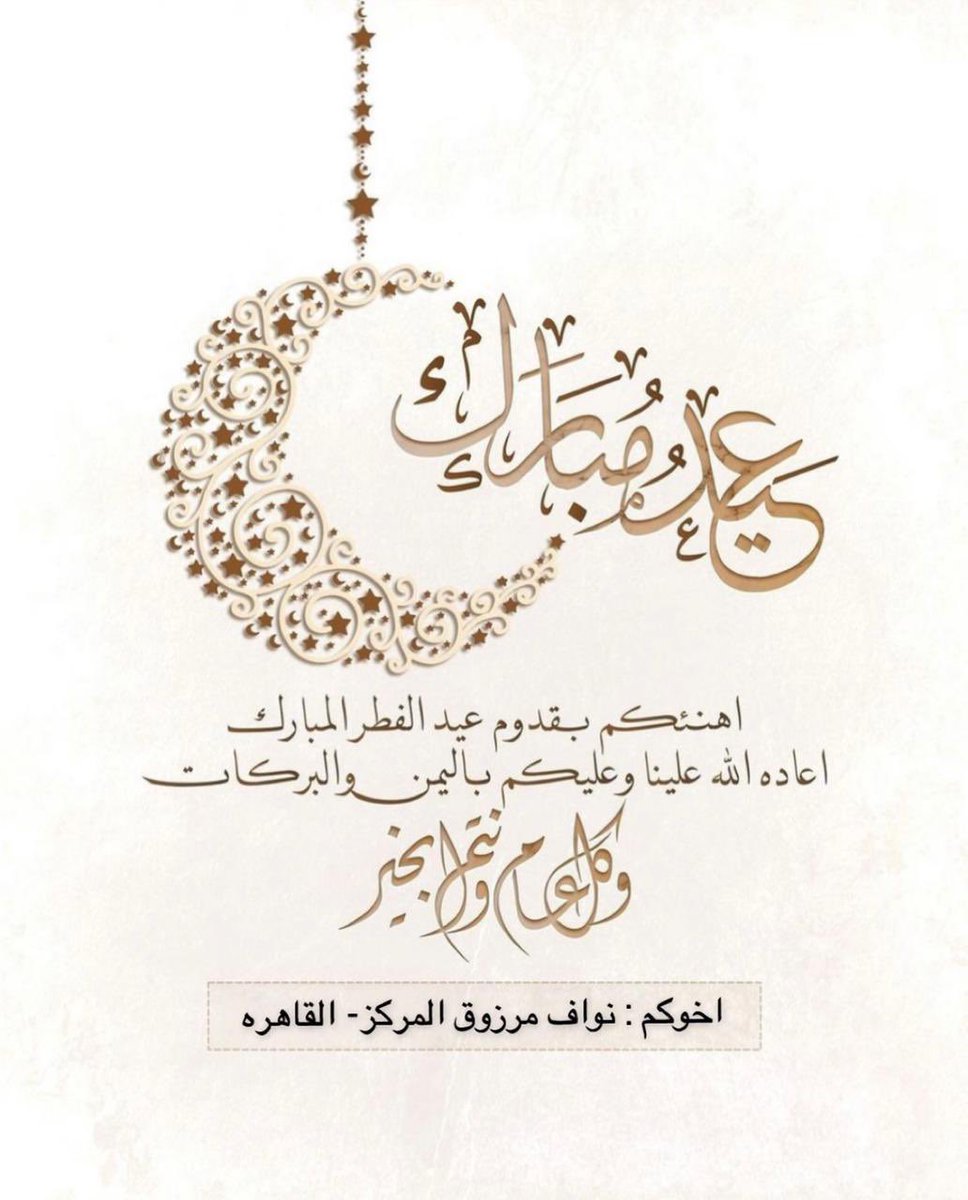 عيد مُبارك
اهنئكم بقدوم عيد الفطر المبارك
اعاده الله علينا وعليكم باليمن والبركات
وكل عام وانتم بخير
اخوكم : نواف مرزوق المركز- القاهره